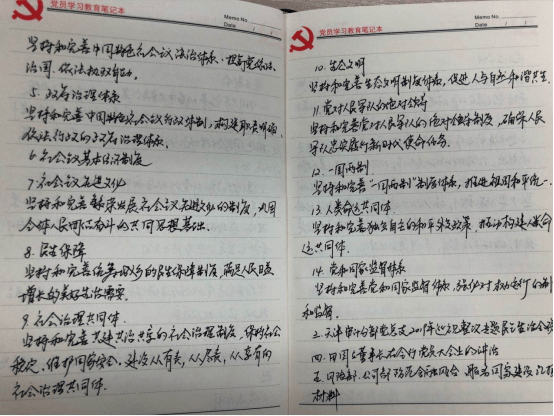 党员学习教育笔记本
Memo No.
Date / /
坚持和完善中国特色社会主义法治体系，提高党依法
治国、依法执政能力。
5. 政府治理体系
坚持和完善中国特色社会主义行政体制，构建职责明确、
依法行政的政府治理体系。
6. 社会主义基本经济制度
7. 社会主义先进文化
坚持和完善繁荣发展社会主义先进文化的制度，巩固
全体人民团结奋斗的共同思想基础。
8. 民生保障
坚持和完善统筹城乡的民生保障制度，满足人民日益
增长的美好生活需要。
9. 社会治理共同体
坚持和完善共建共治共享的社会治理制度，保持社会
稳定、维护国家安全。建设人人有责、人人尽责、人人享有的
社会治理共同体。
党员学习教育笔记本
Memo No.
Date / /
10. 生态文明
坚持和完善生态文明制度体系，促进人与自然和谐共生。
11. 党对人民军队的绝对领导
坚持和完善党对人民军队的绝对领导制度，确保人民
军队忠实履行新时代使命任务。
12. 一国两制
坚持和完善"一国两制"制度体系，推进祖国和平统一。
13. 人类命运共同体
坚持和完善独立自主的和平外交政策，推动构建人类命
运共同体。
14. 党和国家监督体系
坚持和完善党和国家监督体系，强化对权力运行的制
约和监督。
2. 天津审计分部党总支2019年巡视整改专题民主生活会
四. 田国立董事长在全行党员大会上的讲话
五. 风险部、公司部防范金融风险、服务国家建设
材料